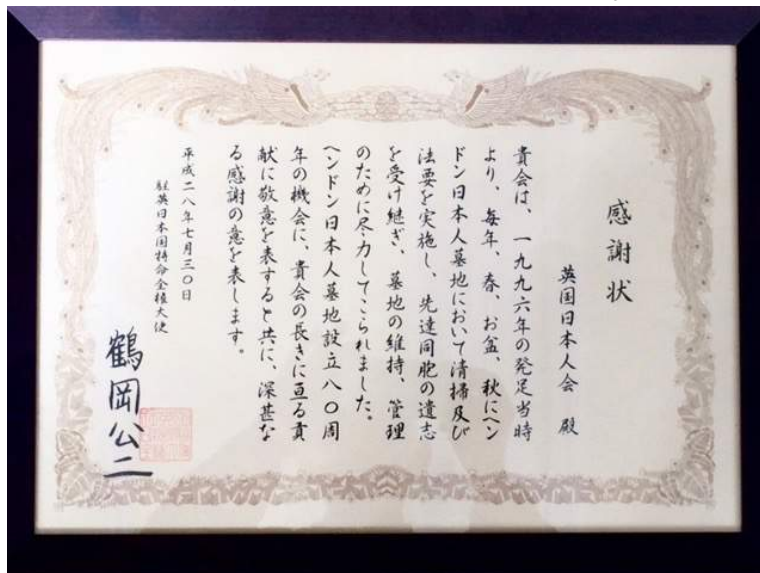 感謝状
英国日本人会 殿
貴会は、一九九六年の発足当時
より、毎年、春、お盆、秋にヘン
ドン日本人墓地において清掃及び
法要を実施し、先達同胞の遺志
を受け継ぎ、墓地の維持、管理
のために尽力してこられました。
ヘンドン日本人墓地設立八〇周
年の機会に、貴会の長きに亘る貢
献に敬意を表すると共に、深甚な
る感謝の意を表します。
平成二八年七月三〇日
駐英日本国特命全権大使
鶴岡公二